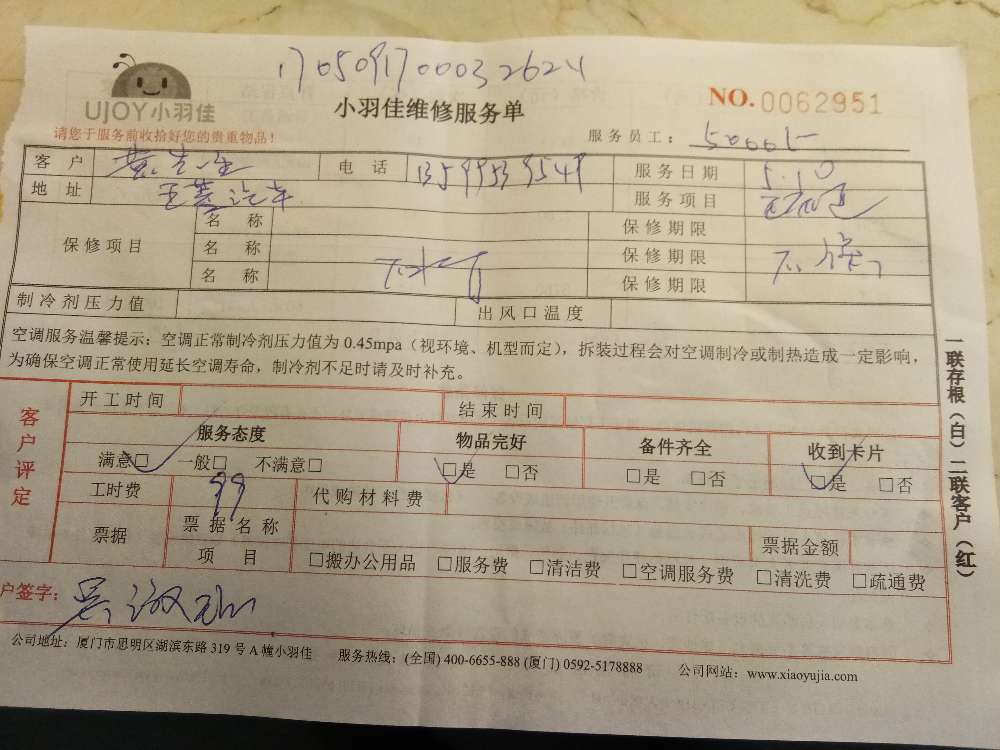 17050917000 32624
UJOY小羽佳
小羽佳维修服务单
NO.0062951
请您于服务前收拾好您的贵重物品！
服务员工：50005
客户 黄先生 电话 13599539549 服务日期 5.10
地址 服务项目
保修项目 名称 保修期限
名称 保修期限 不保
名称 保修期限
制冷剂压力值 出风口温度
空调服务温馨提示：空调正常制冷剂压力值为0.45mpa（视环境、机型而定），拆装过程会对空调制冷或制热造成一定影响，
为确保空调正常使用延长空调寿命，制冷剂不足时请及时补充。
客户评定
开工时间 结束时间
服务态度 物品完好 备件齐全 收到卡片
满意□ 一般□ 不满意□ □是 □否 □是 □否 □是 □否
工时费 99 代购材料费
票据 票据名称 票据金额
项目 □搬办公用品 □服务费 □清洁费 □空调服务费 □清洗费 □疏通费
户签字：
公司地址：厦门市思明区湖滨东路319号A幢小羽佳 服务热线：(全国) 400-6655-888 (厦门) 0592-5178888 公司网站：www.xiaoyujia.com
一联存根（白）二联客户（红）